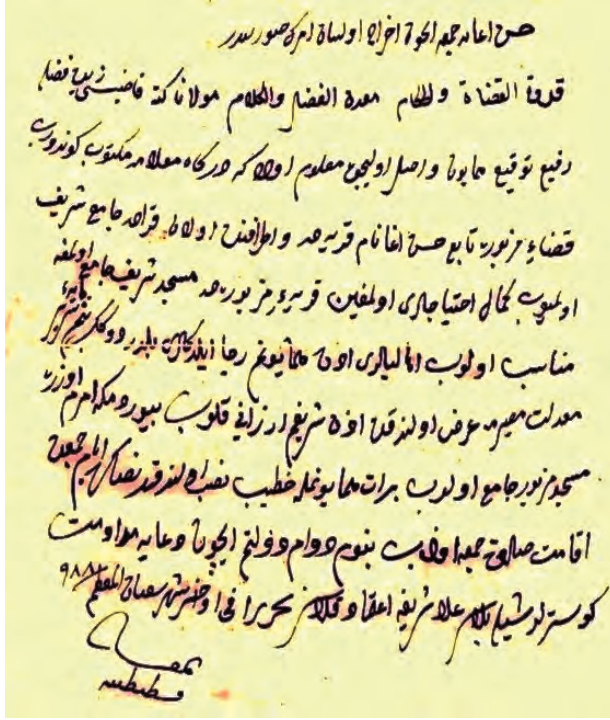 حسن اغا ... جمعه ایچون اخراج اولنان امرك صورتیدر
قدوة القضاة والحكام معدن الفضل والكلام مولانا ... قاضیسی زید فضله
توقیع رفیع همایون واصل اولیجق معلوم اولا که درگاه معلامه مکتوب کوندروب
قضاء مزبوره تابع حسن اغا نام قریه ده و اطرافنده اولان قراده جامع شریف
اولمیوب کمال احتیاجلری اولمغین قریه مزبوره ده مسجد شریف جامع اولمغه
مناسب اولوب اهالیلری اذن همایونم رجا ایلدکلرین
معدلت مصیره عرض اولندقده اذن شریفم ارزانی قلوب بیوردم که امرم اوزره
مسجد مزبور جامع اولوب برات همایونمله خطیب نصب اولندقدنصکره ایام جمعه ده
اقامت صلوة جمعه اولنوب بنوم دوام دولتم ایچون دعایه مداومت
کوستره لر شویله بلاسز علامت شریفه اعتماد قلاسز تحریرا فی اواخر شهر شعبان المعظم سنه ٩٨٨
بمقام
قسطنطنیه